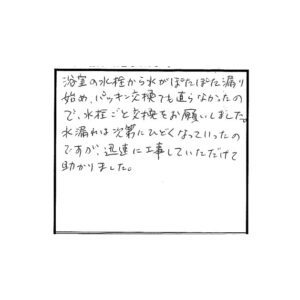 浴室の水栓から水がぽたぽた漏り
始め、パッキン交換でも直らなかったの
で、水栓ごと交換をお願いしました。
水漏れは次第にひどくなっていったの
ですが、迅速に工事していただけて
助かりました。